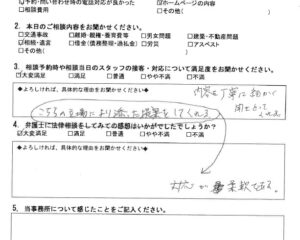 □予約・問い合わせ時の電話対応が良かった □ホームページの内容
□相談費用 □その他( )
2. 本日のご相談内容をお聞かせください。
□交通事故 □離婚・親権・養育費等 □男女問題 □建築・不動産問題
☑相続・遺言 □借金(債務整理・過払金) □労災 □アスベスト
□その他( )
3. 相談予約時や相談当日のスタッフの接客・対応について満足度をお聞かせください。
☑大変満足 □満足 □普通 □やや不満 □不満
◆よろしければ、具体的な理由をお聞かせください◆
内容を丁寧に細かく
こちらの立場により添った提案をしてくれる
4. 弁護士に法律相談をしてみての感想はいかがでしたでしょうか?
☑大変満足 □満足 □普通 □やや不満 □不満
◆よろしければ、具体的な理由をお聞かせください◆
対応が柔軟である。
5. 当事務所について感じたことをご記入ください。